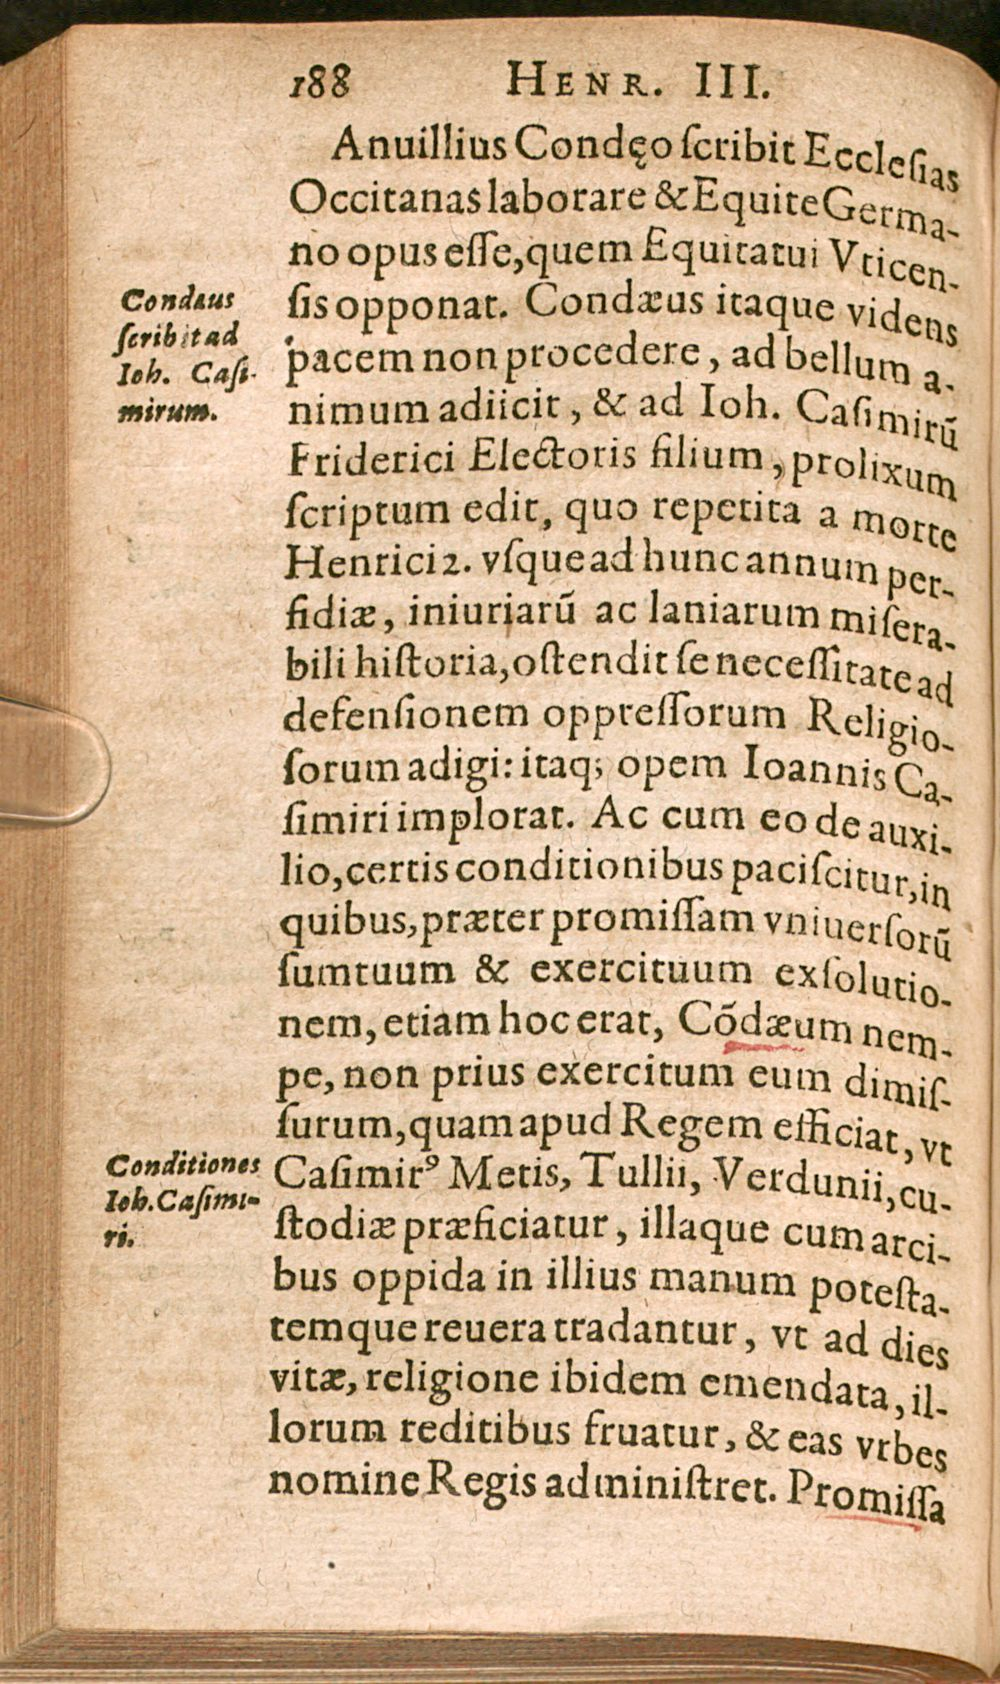 188 HENR. III.
Anuillius Condęo ſcribit Eccleſias
Occitanas laborare & Equite Germa-
no opus eſſe, quem Equitatui Vticen-
ſis opponat. Condæus itaque videns
pacem non procedere, ad bellum a-
nimum adiicit, & ad Ioh. Caſimirū
Friderici Electoris filium, prolixum
ſcriptum edit, quo repetita a morte
Henrici 2. vſque ad hunc annum per-
fidiæ, iniuriarū ac laniarum miſera-
bili hiſtoria, oſtendit ſe neceſſitate ad
defenſionem oppreſſorum Religio-
ſorum adigi: itaq; opem Ioannis Ca-
ſimiri implorat. Ac cum eo de auxi-
lio, certis conditionibus paciſcitur, in
quibus, præter promiſſam vniuerſorū
ſumtuum & exercituum exſolutio-
nem, etiam hoc erat, Cōdæum nem-
pe, non prius exercitum eum dimiſ-
ſurum, quam apud Regem efficiat, vt
Caſimirꝰ Metis, Tullii, Verdunii, cu-
ſtodiæ præficiatur, illaque cum arci-
bus oppida in illius manum poteſta-
temque reuera tradantur, vt ad dies
vitæ, religione ibidem emendata, il-
lorum reditibus fruatur, & eas vrbes
nomine Regis adminiſtret. Promiſſa
Condæus
ſcribit ad
Ioh. Caſi-
mirum.
Conditiones
Ioh. Caſimi-
ri.